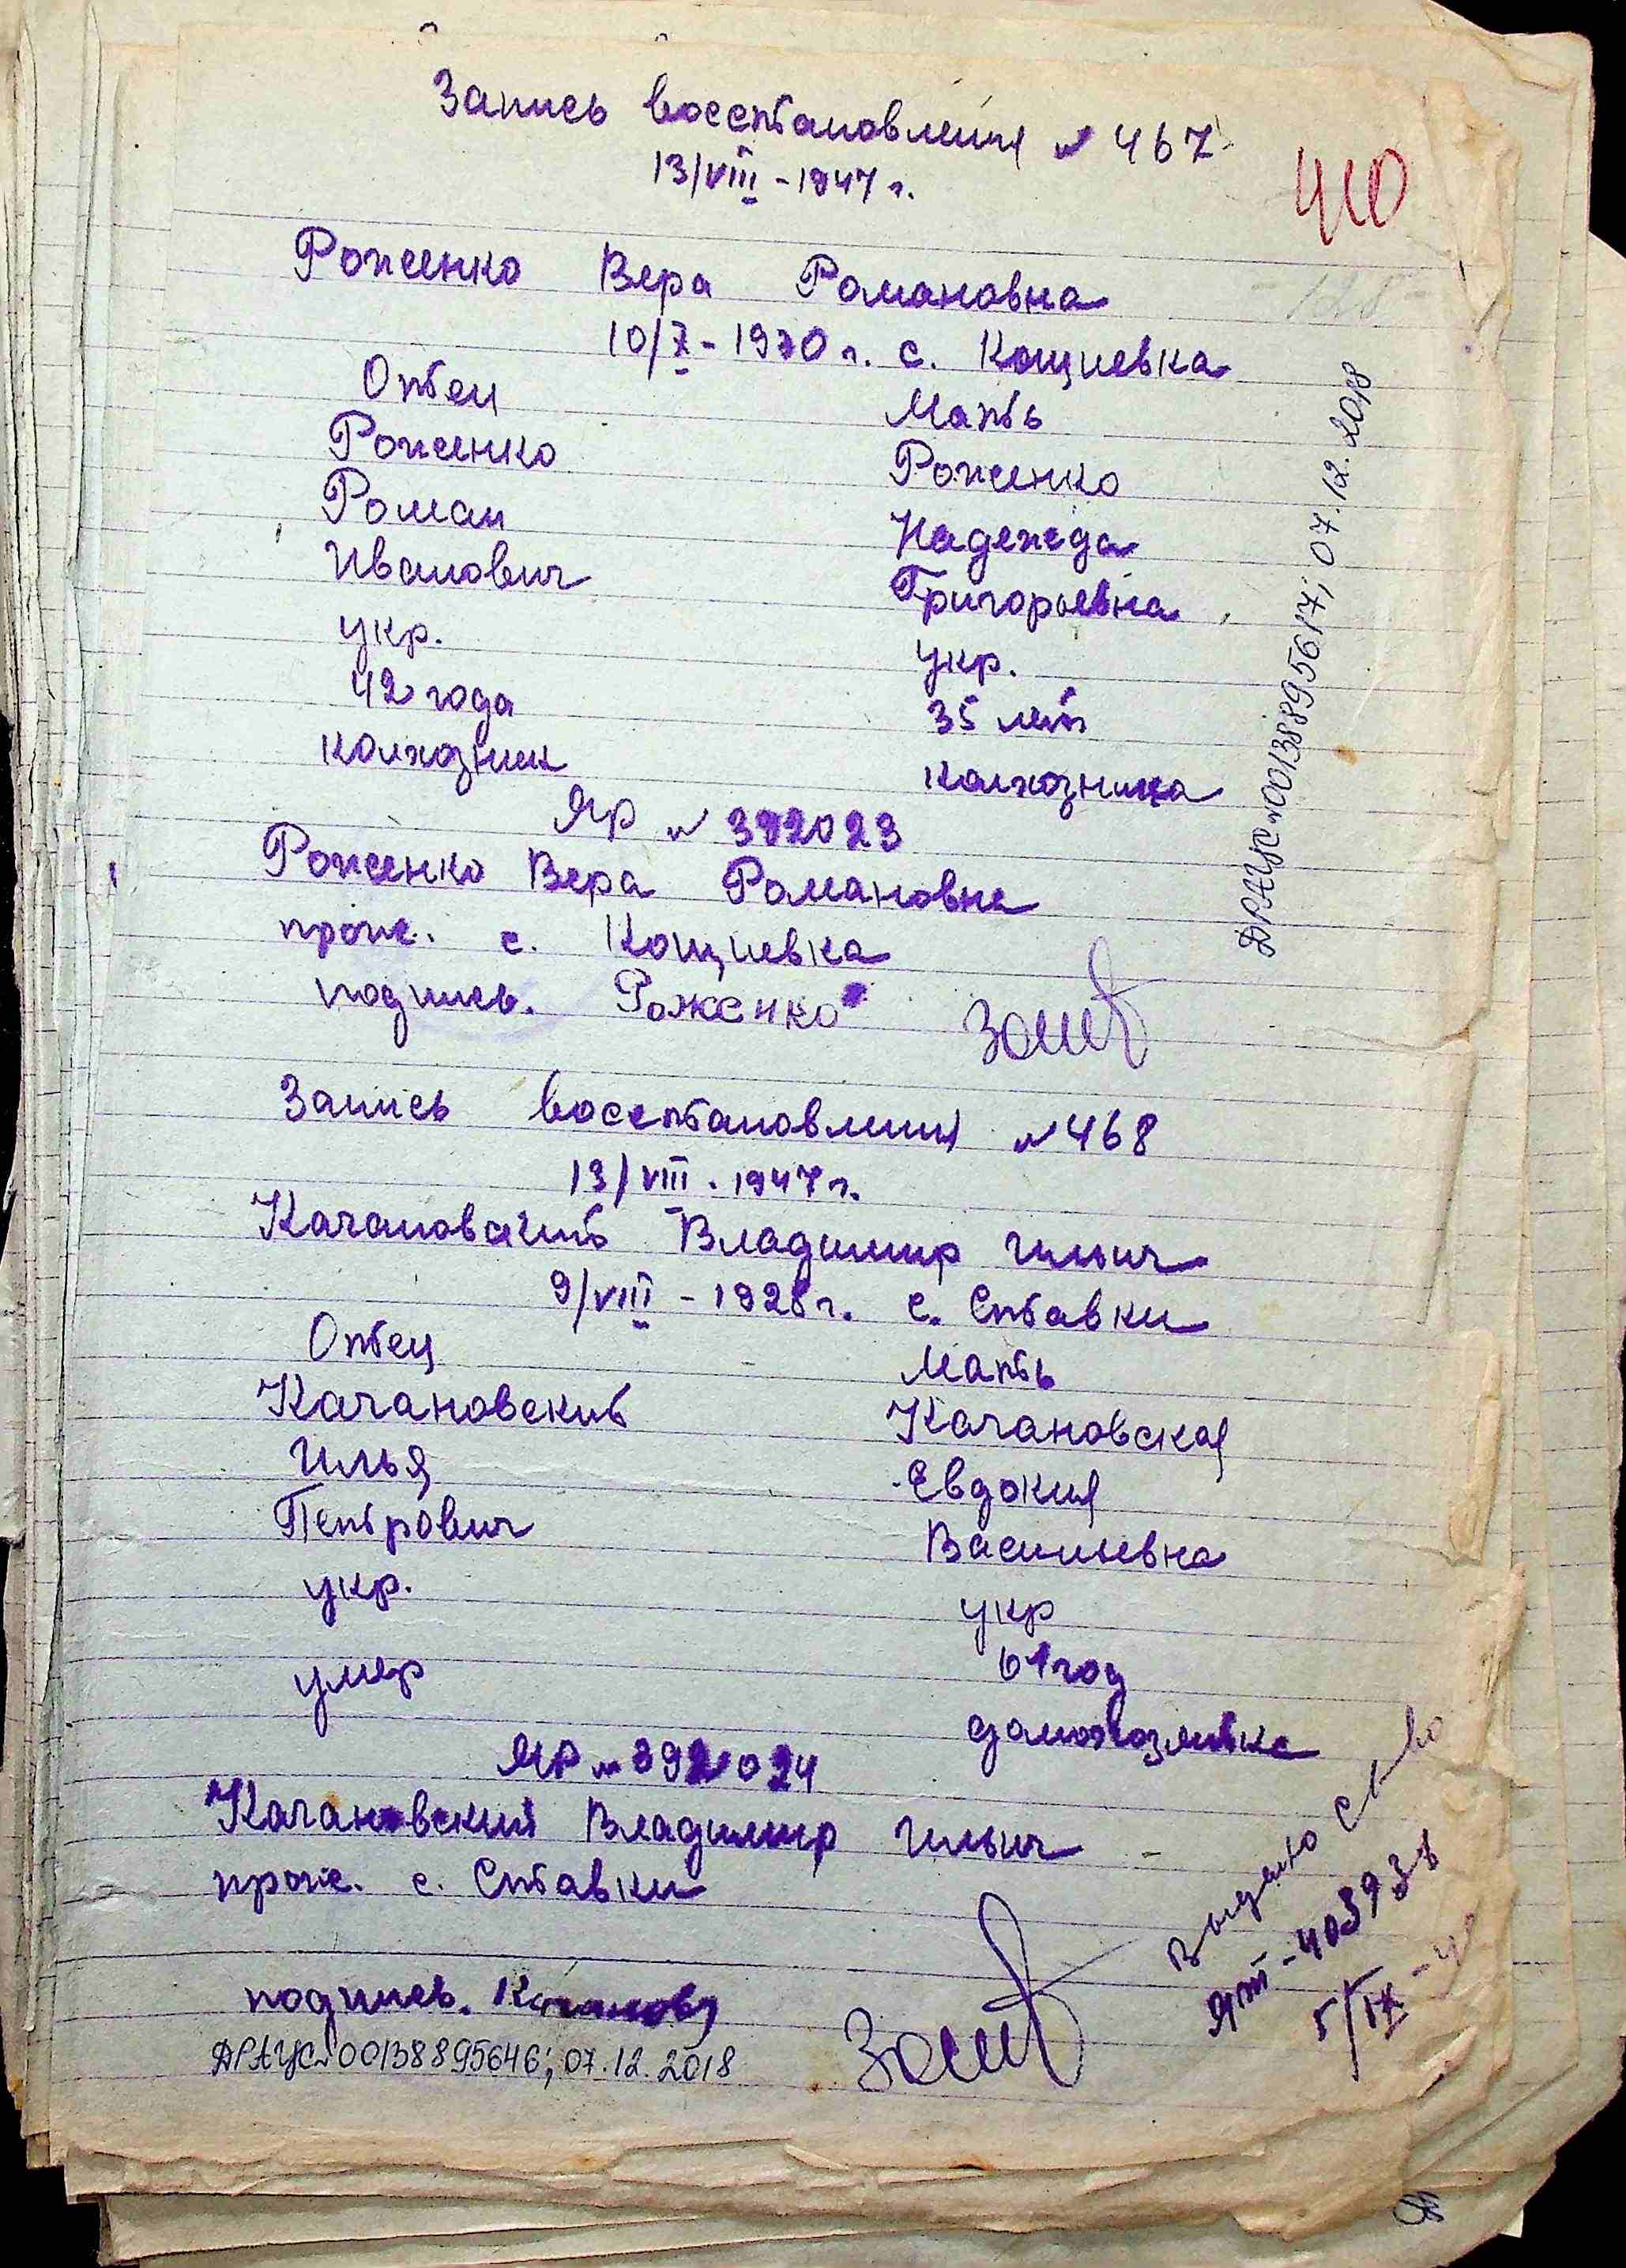 Запись восстановления № 467
13/VIII - 1947 г.
410
Роженко Вера Романовна
10/X - 1930 г. с. Кощиевка
Отец Мать
Роженко Роженко
Роман Надежда
Иванович Григорьевна
укр. укр.
42 года 35 лет
колхозник колхозница
ЯР № 392023
Роженко Вера Романовна
прож. с. Кощиевка
подпись. Роженко
ДРАЦС №00138895617; 07.12.2018
Запись восстановления № 468
13/VIII. 1947 г.
Качановский Владимир Ильич
9/VIII - 1928 г. с. Ставки
Отец Мать
Качановский Качановская
Илья Евдокия
Петрович Васильевна
укр. укр
умер 61 год
домохозяйка
ЯР № 392024
Качановский Владимир Ильич
прож. с. Ставки
подпись.
ДРАЦС №00138895646; 07.12.2018
Выдано св-во
5/IX